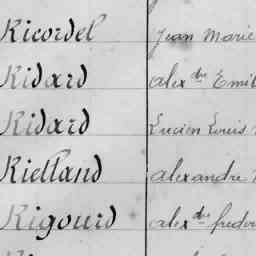 Ricordel Jean Marie
Ridard alex dre Emil
Ridard Lucien Louis
Rielland alexandre
Rigourd alex dre frede